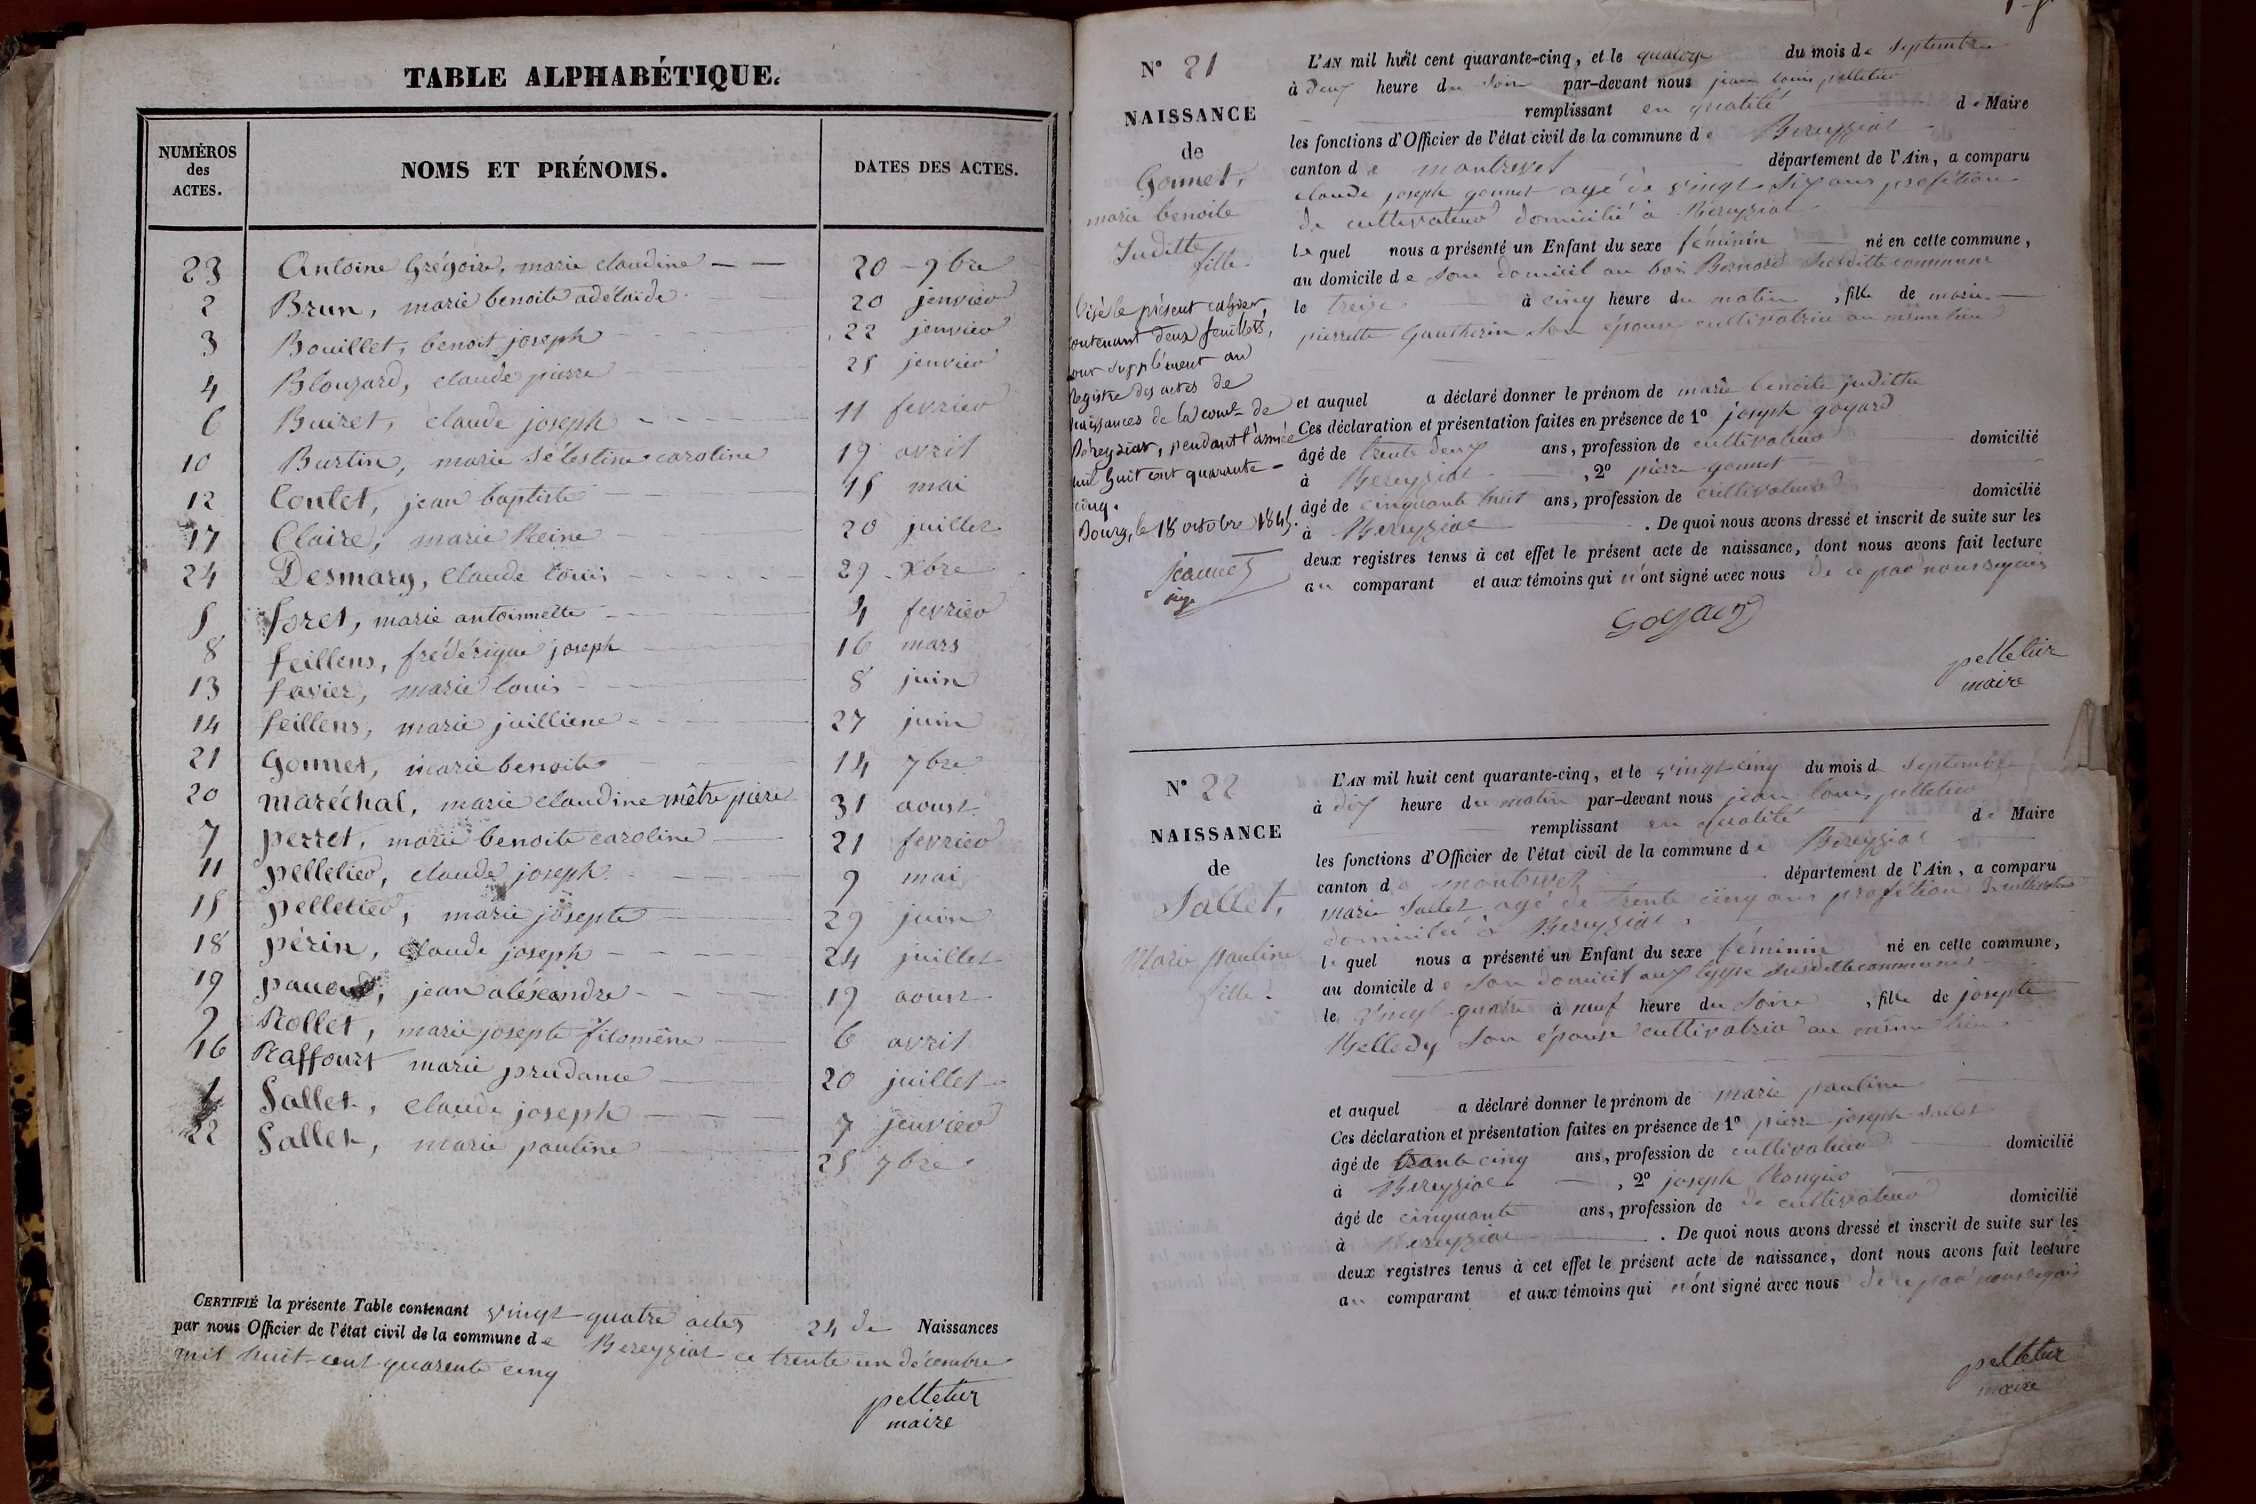 TABLE ALPHABÉTIQUE.
NUMÉROS des ACTES. NOMS ET PRÉNOMS. DATES DES ACTES.
23 Antoine Grégoire, marie claudine 20 9bre
2 Brun, marie benoite adélaïde 20 jenvier
3 Bouillet, benoit joseph 22 jenvier
4 Blouzard, claude pierre 25 jenvier
6 Buiret, claude joseph 11 fevrier
10 Burtin, marie sélestine caroline 19 avril
12 Contet, jean baptiste 15 mai
17 Claire, marie Reine 20 juillet
24 Desmary, Claude louis 29 Xbre
5 foret, marie antoinnette 4 fevrier
8 feillens, frédérique joseph 16 mars
13 favier, marie louis 8 juin
14 feillens, marie juilliene 27 juin
21 Gonnet, marie benoite 14 7bre
20 maréchal, marie claudine mêtre pierre 31 aoust
7 perret, marie benoite caroline 21 fevrier
11 pelletier, claude joseph 9 mai
15 pelletier, marie josepte 29 juin
18 périn, claude joseph 24 juillet
19 jean aléxandre 19 aoust
9 Rollet, marie josepte filomène 6 avril
16 Raffourt marie prudance 20 juillet
1 Sallet, claude joseph 7 jenvier
22 Sallet, marie pauline 25 7bre
CERTIFIÉ la présente Table contenant vingt-quatre actes 24 de Naissances
par nous Officier de l'état civil de la commune de Bereyziat ce trente un décembre
mil huit-cent quarente cinq
pelletier
maire
N° 21
NAISSANCE
de
Gonnet,
marie benoite
Juditte
fille
Visé le présent cahier,
contenant deux feuillets,
pour supplément au
registre des actes de
naissances de la comne de
Béreyziat, pendant l'année
mil huit cent quarante-
cinq.
Bourg, le 18 octobre 1845.
juge
L'AN mil huit cent quarante-cinq, et le quatorze du mois de septembre
à deux heure du soir par-devant nous jean louis pelletier
remplissant en qualité de Maire
les fonctions d'Officier de l'état civil de la commune de Bereyziat
canton de montrevel département de l'Ain, a comparu
claude joseph gonnet agé de vingt six ans profétion
de cultivateur domicilié à Bereyziat
lequel nous a présenté un Enfant du sexe féminin né en cette commune,
au domicile de son domicil au bois Bernard susditte commune
le treize à cinq heure du matin, fille de marie
pierrette Gautherin son épouse cultivatrice au même lieu
et auquel a déclaré donner le prénom de marie benoite juditte
Ces déclaration et présentation faites en présence de 1° joseph goyard
âgé de trente deux ans, profession de cultivateur domicilié
à Bereyziat, 2° pierre gonnet
âgé de cinquante huit ans, profession de cultivateur domicilié
à Bereyziat. De quoi nous avons dressé et inscrit de suite sur les
deux registres tenus à cet effet le présent acte de naissance, dont nous avons fait lecture
au comparant et aux témoins qui n'ont signé avec nous de ce par nous requis
Goyard
pelletier
maire
N° 22
NAISSANCE
de
Sallet,
Marie pauline
fille.
L'AN mil huit cent quarante-cinq, et le vingt cinq du mois de septembre
à dix heure du matin par-devant nous jean louis pelletier
remplissant en qualité de Maire
les fonctions d'Officier de l'état civil de la commune de Bereyziat
canton de montrevel département de l'Ain, a comparu
marie Sallet agé de trente cinq ans profétion de cultivateur
domicilié à Bereyziat
lequel nous a présenté un Enfant du sexe féminin né en cette commune,
au domicile de son domicil aux susditte commune
le vingt-quatre à neuf heure du soire, fille de josepte
son épouse cultivatrice au même lieu
et auquel a déclaré donner le prénom de marie pauline
Ces déclaration et présentation faites en présence de 1° pierre joseph Sallet
âgé de trante cinq ans, profession de cultivateur domicilié
à Bereyziat, 2° joseph
âgé de cinquante ans, profession de de cultivateur domicilié
à Bereyziat. De quoi nous avons dressé et inscrit de suite sur les
deux registres tenus à cet effet le présent acte de naissance, dont nous avons fait lecture
au comparant et aux témoins qui n'ont signé avec nous de ce par nous requis
pelletier
maire